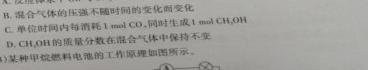 B. 混合气体的压强不随时间的变化而变化
C. 单位时间内每消耗 1 mol CO,同时生成 1 mol CH₃OH
D. CH₃OH 的质量分数在混合气体中保持不变
某种甲烷燃料电池的工作原理如图所示。